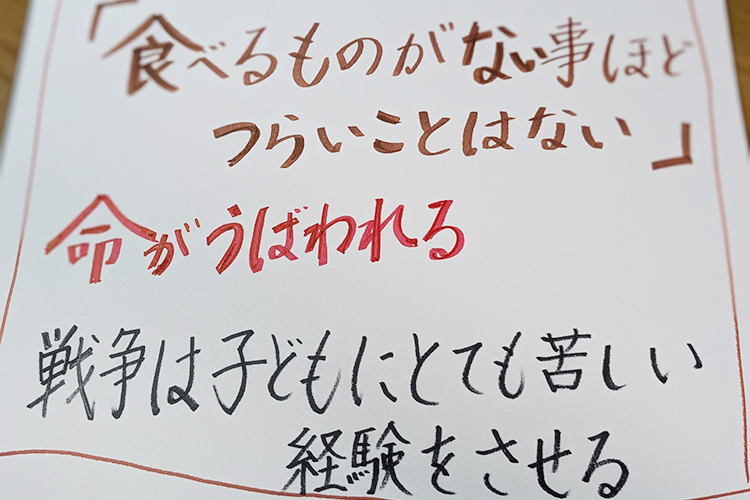 「食べるものがない事ほど
つらいことはない」
命がうばわれる
戦争は子どもにとても苦しい
経験をさせる